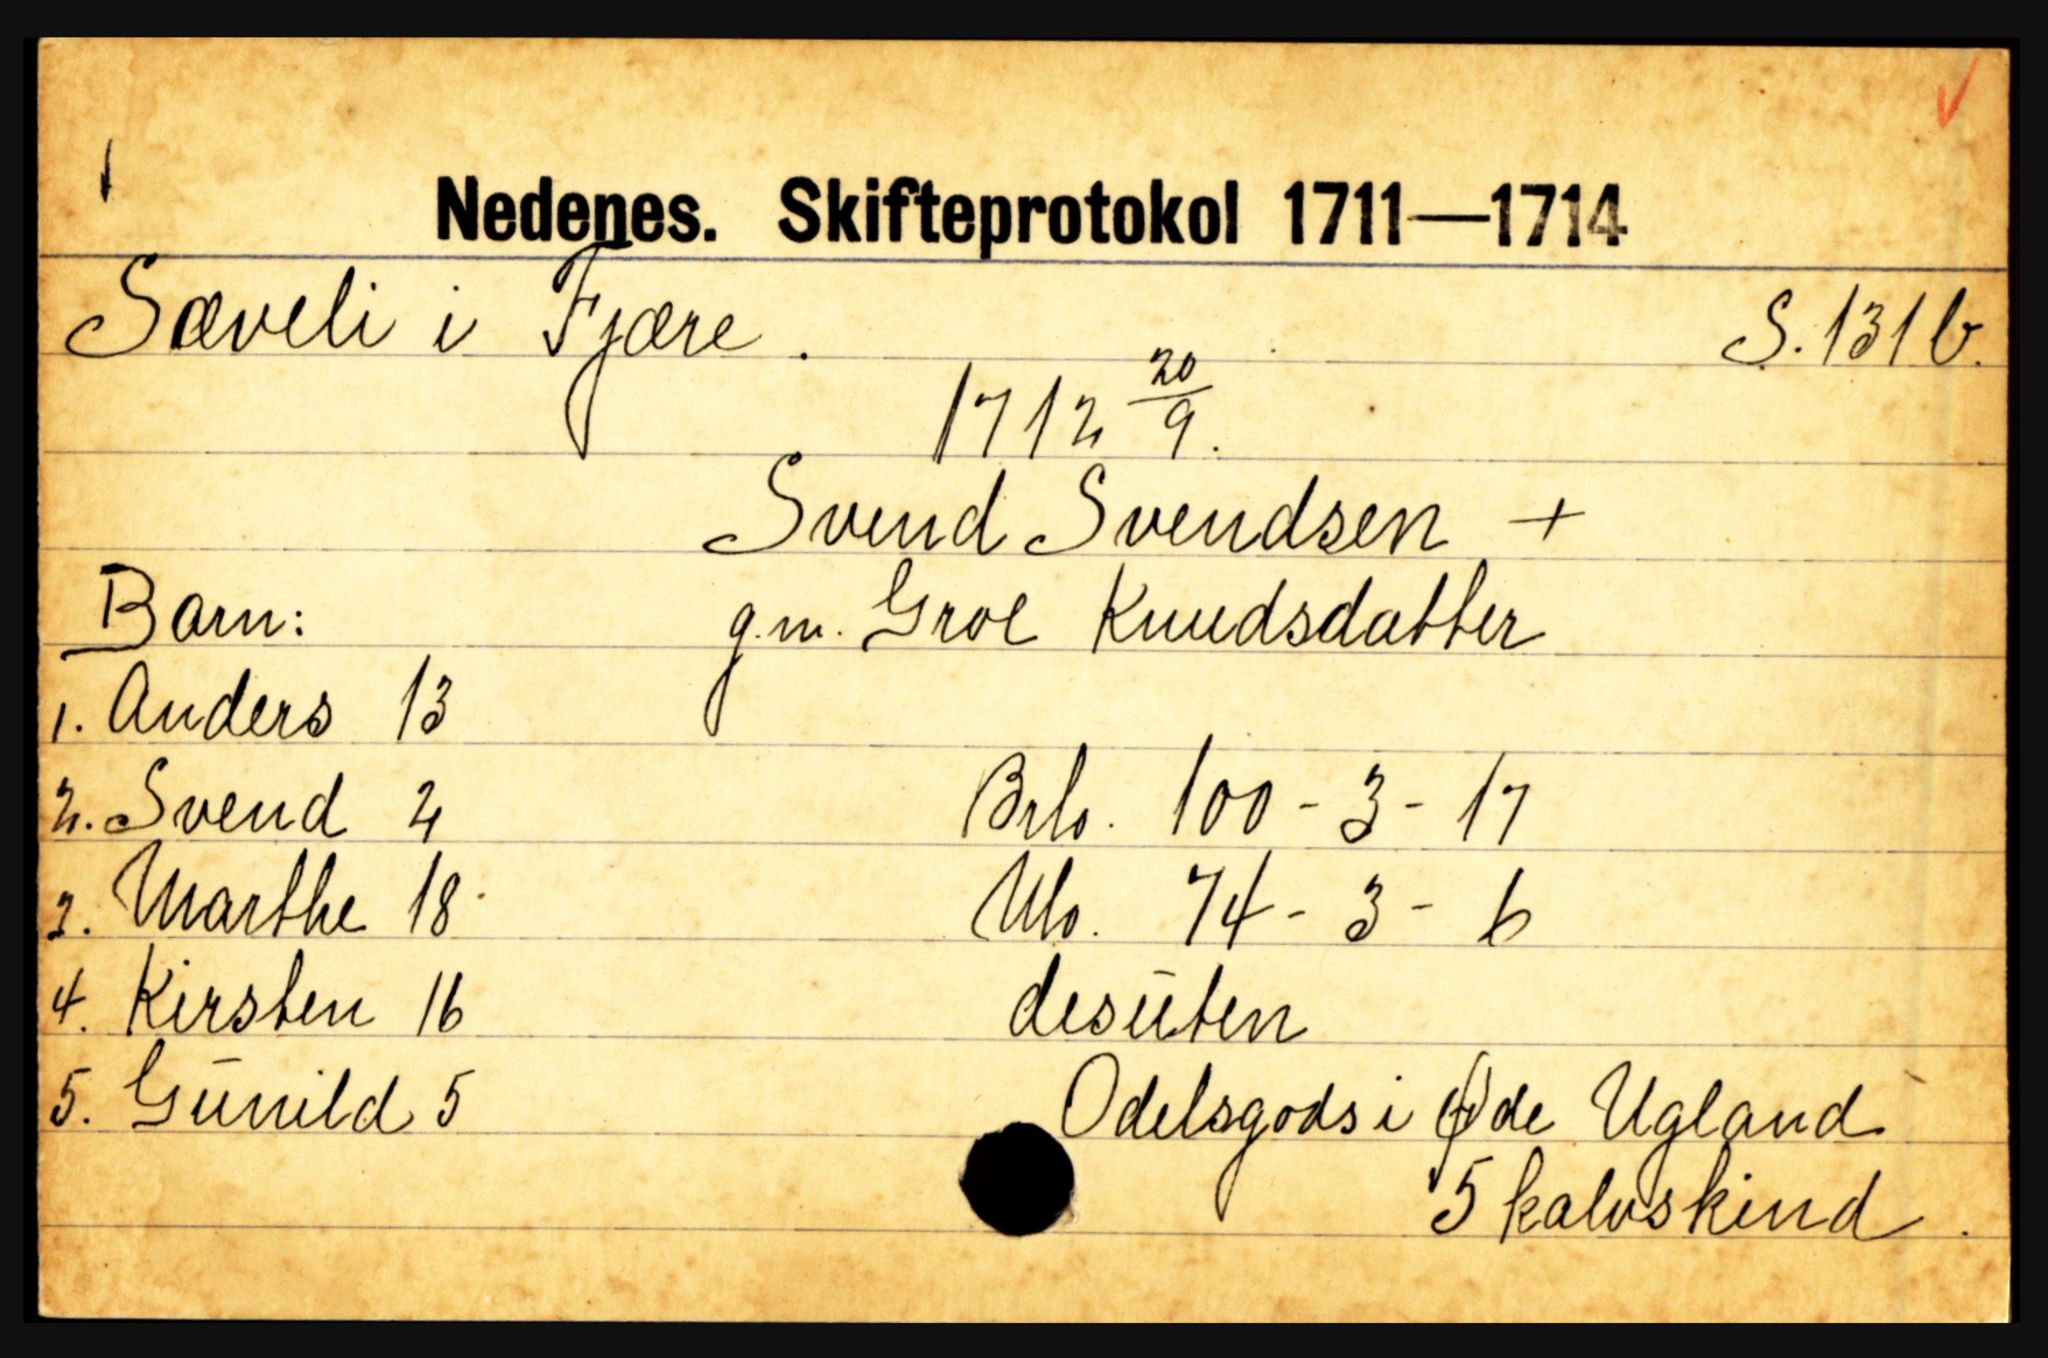 Nedenes. Skifteprotokol 1711—1714
Sæveli i Fjære. S. 131 b.
1712 20/9.
Svend Svendsen +
Barn: g.m. Groe Knudsdatter
1. Anders 13
2. Svend 2 Brlo. 100 - 3 - 17
3. Marthe 18 Nlo. 74 - 3 - 6
4. Kirsten 16 desūten
5. Gūnild 5 Odelsgods i Øde Ugland
5 kalvskind.